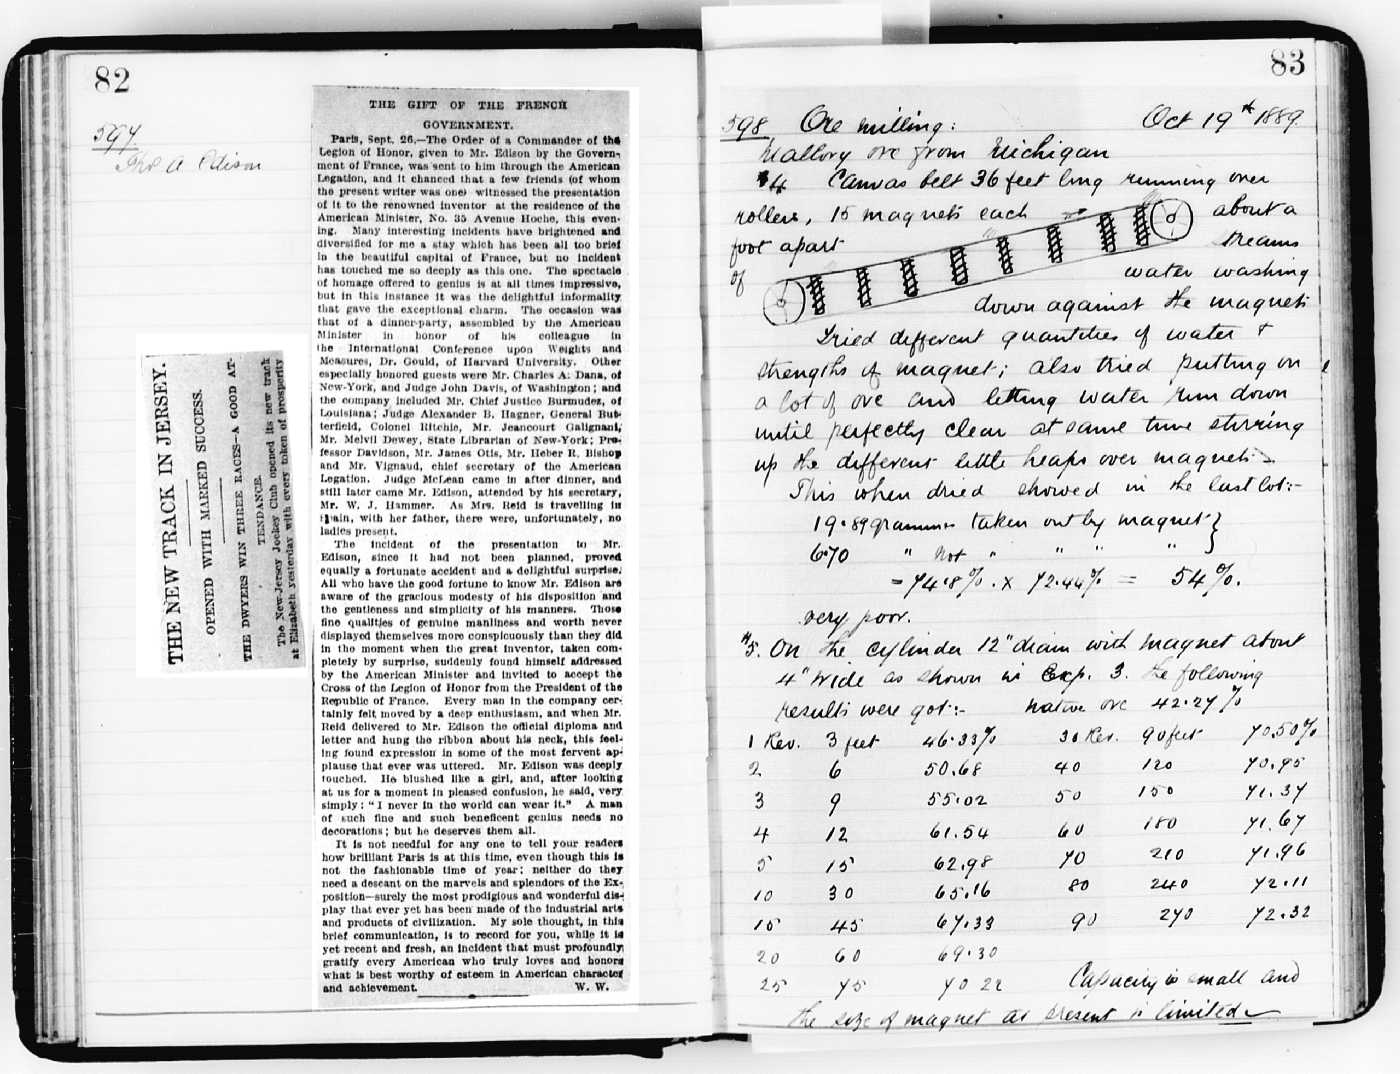 82
597
Thos A Edison
THE NEW TRACK IN JERSEY.
OPENED WITH MARKED SUCCESS.
THE DWYERS WIN THREE RACES—A GOOD AT-
TENDANCE.
The New-Jersey Jockey Club opened its new track
at Elizabeth yesterday with every token of prosperity
THE GIFT OF THE FRENCH
GOVERNMENT.
Paris, Sept. 26.—The Order of a Commander of the
Legion of Honor, given to Mr. Edison by the Govern-
ment of France, was sent to him through the American
Legation, and it chanced that a few friends (of whom
the present writer was one) witnessed the presentation
of it to the renowned inventor at the residence of the
American Minister, No. 35 Avenue Hoche, this even-
ing. Many interesting incidents have brightened and
diversified for me a stay which has been all too brief
in the beautiful capital of France, but no incident
has touched me so deeply as this one. The spectacle
of homage offered to genius is at all times impressive,
but in this instance it was the delightful informality
that gave the exceptional charm. The occasion was
that of a dinner-party, assembled by the American
Minister in honor of his colleague in
the International Conference upon Weights and
Measures, Dr. Gould, of Harvard University. Other
especially honored guests were Mr. Charles A. Dana, of
New-York, and Judge John Davis, of Washington; and
the company included Mr. Chief Justice Burmudez, of
Louisiana; Judge Alexander B. Hagner, General But-
terfield, Colonel Ritchie, Mr. Jeancourt Galignani,
Mr. Melvil Dewey, State Librarian of New-York; Pro-
fessor Davidson, Mr. James Otis, Mr. Heber R. Bishop
and Mr. Vignaud, chief secretary of the American
Legation. Judge McLean came in after dinner, and
still later came Mr. Edison, attended by his secretary,
Mr. W. J. Hammer. As Mrs. Reid is travelling in
Spain, with her father, there were, unfortunately, no
ladies present.
The incident of the presentation to Mr.
Edison, since it had not been planned, proved
equally a fortunate accident and a delightful surprise.
All who have the good fortune to know Mr. Edison are
aware of the gracious modesty of his disposition and
the gentleness and simplicity of his manners. Those
fine qualities of genuine manliness and worth never
displayed themselves more conspicuously than they did
in the moment when the great inventor, taken com-
pletely by surprise, suddenly found himself addressed
by the American Minister and invited to accept the
Cross of the Legion of Honor from the President of the
Republic of France. Every man in the company cer-
tainly felt moved by a deep enthusiasm, and when Mr.
Reid delivered to Mr. Edison the official diploma and
letter and hung the ribbon about his neck, this feel-
ing found expression in some of the most fervent ap-
plause that ever was uttered. Mr. Edison was deeply
touched. He blushed like a girl, and, after looking
at us for a moment in pleased confusion, he said, very
simply: "I never in the world can wear it." A man
of such fine and such beneficent genius needs no
decorations; but he deserves them all.
It is not needful for any one to tell your readers
how brilliant Paris is at this time, even though this is
not the fashionable time of year; neither do they
need a descant on the marvels and splendors of the Ex-
position—surely the most prodigious and wonderful dis-
play that ever yet has been made of the industrial arts
and products of civilization. My sole thought, in this
brief communication, is to record for you, while it is
yet recent and fresh, an incident that must profoundly
gratify every American who truly loves and honors
what is best worthy of esteem in American character
and achievement. W. W.
83
598 Ore milling: Oct 19th 1889.
Mallory ore from Michigan
#4 Canvas belt 36 feet long running over
rollers, 15 magnets each about a
foot apart streams
of water washing
down against the magnets
Tried different quantities of water &
strengths of magnet; also tried putting on
a lot of ore and letting water run down
until perfectly clear at same time stirring
up the different little heaps over magnets
This when dried showed in the last lot:-
19.89 grammes taken out by magnet }
6.70 " not " " " " }
= 74.8% . x 72.44% = 54%.
very poor.
#5. On the cylinder 12" diam with magnet about
4" wide as shown in Exp. 3. the following
results were got:- native ore 42.27%
1 Rev. 3 feet 46.33% 30 Rev. 90 feet 70.50%
2 6 50.68 40 120 70.95
3 9 55.02 50 150 71.37
4 12 61.54 60 180 71.67
5 15 62.98 70 210 71.96
10 30 65.16 80 240 72.11
15 45 67.33 90 270 72.32
20 60 69.30
25 75 70 22 Capacity is small and
the size of magnet at present is limited